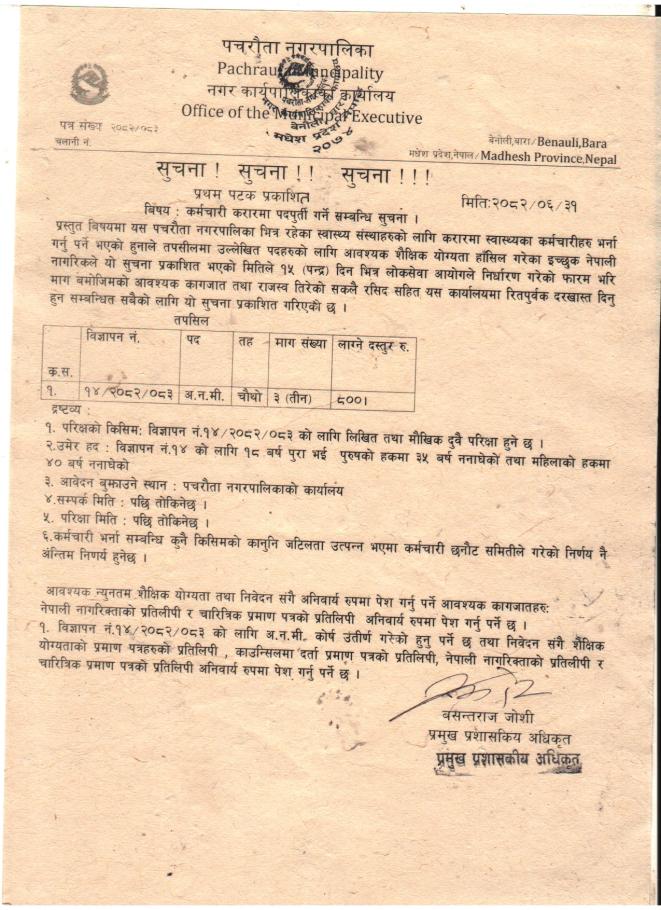 पचरौता नगरपालिका
Pachrauta Municipality
नगर कार्यपालिकाको कार्यालय
Office of the Municipal Executive
पत्र संख्य २०८२/०८३
चलानी नं.
बेनौली,बारा/Benauli,Bara
मधेश प्रदेश,नेपाल/Madhesh Province,Nepal
बेनौली, बारा
मधेश प्रदेश, नेपाल
२०७४
सुचना ! सुचना !! सुचना !!!
प्रथम पटक प्रकाशित
मिति:२०८२/०६/३१
बिषय : कर्मचारी करारमा पदपुर्ती गर्ने सम्बन्धि सुचना ।
प्रस्तुत बिषयमा यस पचरौता नगरपालिका भित्र रहेका स्वास्थ्य संस्थाहरुको लागि करारमा स्वास्थ्यका कर्मचारीहरु भर्ना
गर्नु पर्ने भएको हुनाले तपसीलमा उल्लेखित पदहरुको लागि आवश्यक शैक्षिक योग्यता हाँसिल गरेका इच्छुक नेपाली
नागरिकले यो सुचना प्रकाशित भएको मितिले १५ (पन्द्र) दिन भित्र लोकसेवा आयोगले निर्धारण गरेको फारम भरि
माग बमोजिमको आवश्यक कागजात तथा राजस्व तिरेको सकलै रसिद सहित यस कार्यालयमा रितपुर्वक दरखास्त दिनु
हुन सम्बन्धित सबैको लागि यो सुचना प्रकाशित गरिएकी छ ।
तपसिल
क.स. विज्ञापन नं. पद तह माग संख्या लाग्ने दस्तुर रु.
१. १४/२०८२/०८३ अ.न.मी. चौथो ३ (तीन) ८००।
द्रष्टव्य :
१. परिक्षको किसिम: विज्ञापन नं.१४/२०८२/०८३ को लागि लिखित तथा मौखिक दुवै परिक्षा हुने छ ।
२.उमेर हद : विज्ञापन नं.१४ को लागि १८ बर्ष पुरा भई पुरुषको हकमा ३५ बर्ष ननाघेको तथा महिलाको हकमा
४० बर्ष ननाघेको
३. आवेदन बुझाउने स्थान : पचरौता नगरपालिकाको कार्यालय
४.सम्पर्क मिति : पछि तोकिनेछ ।
५. परिक्षा मिति : पछि तोकिनेछ ।
६.कर्मचारी भर्ना सम्बन्धि कुनै किसिमको कानुनि जटिलता उत्पन्न भएमा कर्मचारी छनौट समितीले गरेको निर्णय नै
अंन्तिम निणर्य हुनेछ ।
आवश्यक न्युनतम शैक्षिक योग्यता तथा निवेदन संगै अनिवार्य रुपमा पेश गर्नु पर्ने आवश्यक कागजातहरु:
नेपाली नागरिक्ताको प्रतिलीपी र चारित्रिक प्रमाण पत्रको प्रतिलिपी अनिवार्य रुपमा पेश गर्नु पर्ने छ ।
१. विज्ञापन नं.१४/२०८२/०८३ को लागि अ.न.मी. कोर्ष उंतीर्ण गरेको हुनु पर्ने छ तथा निवेदन संगै शैक्षिक
योग्यताको प्रमाण पत्रहरुको प्रतिलिपी , काउन्सिलमा दर्ता प्रमाण पत्रको प्रतिलिपी, नेपाली नागरिक्ताको प्रतिलीपी र
चारित्रिक प्रमाण पत्रको प्रतिलिपी अनिवार्य रुपमा पेश गर्नु पर्ने छ ।
बसन्तराज जोशी
प्रमुख प्रशासकिय अधिकृत
प्रमुख प्रशासकीय अधिकृत